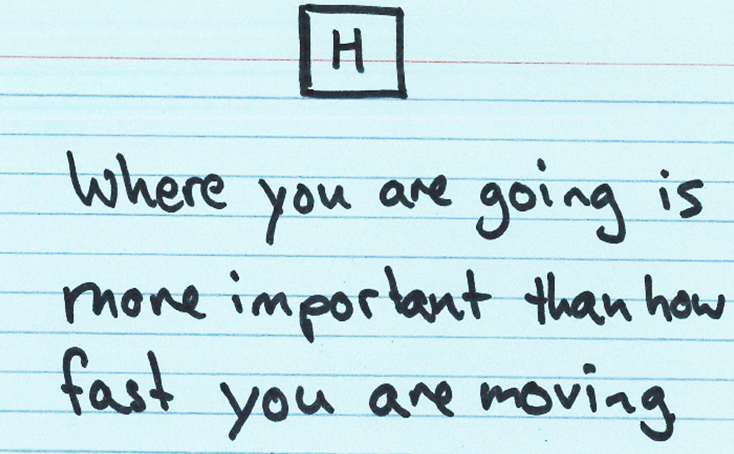 H
Where you are going is
more important than how
fast you are moving